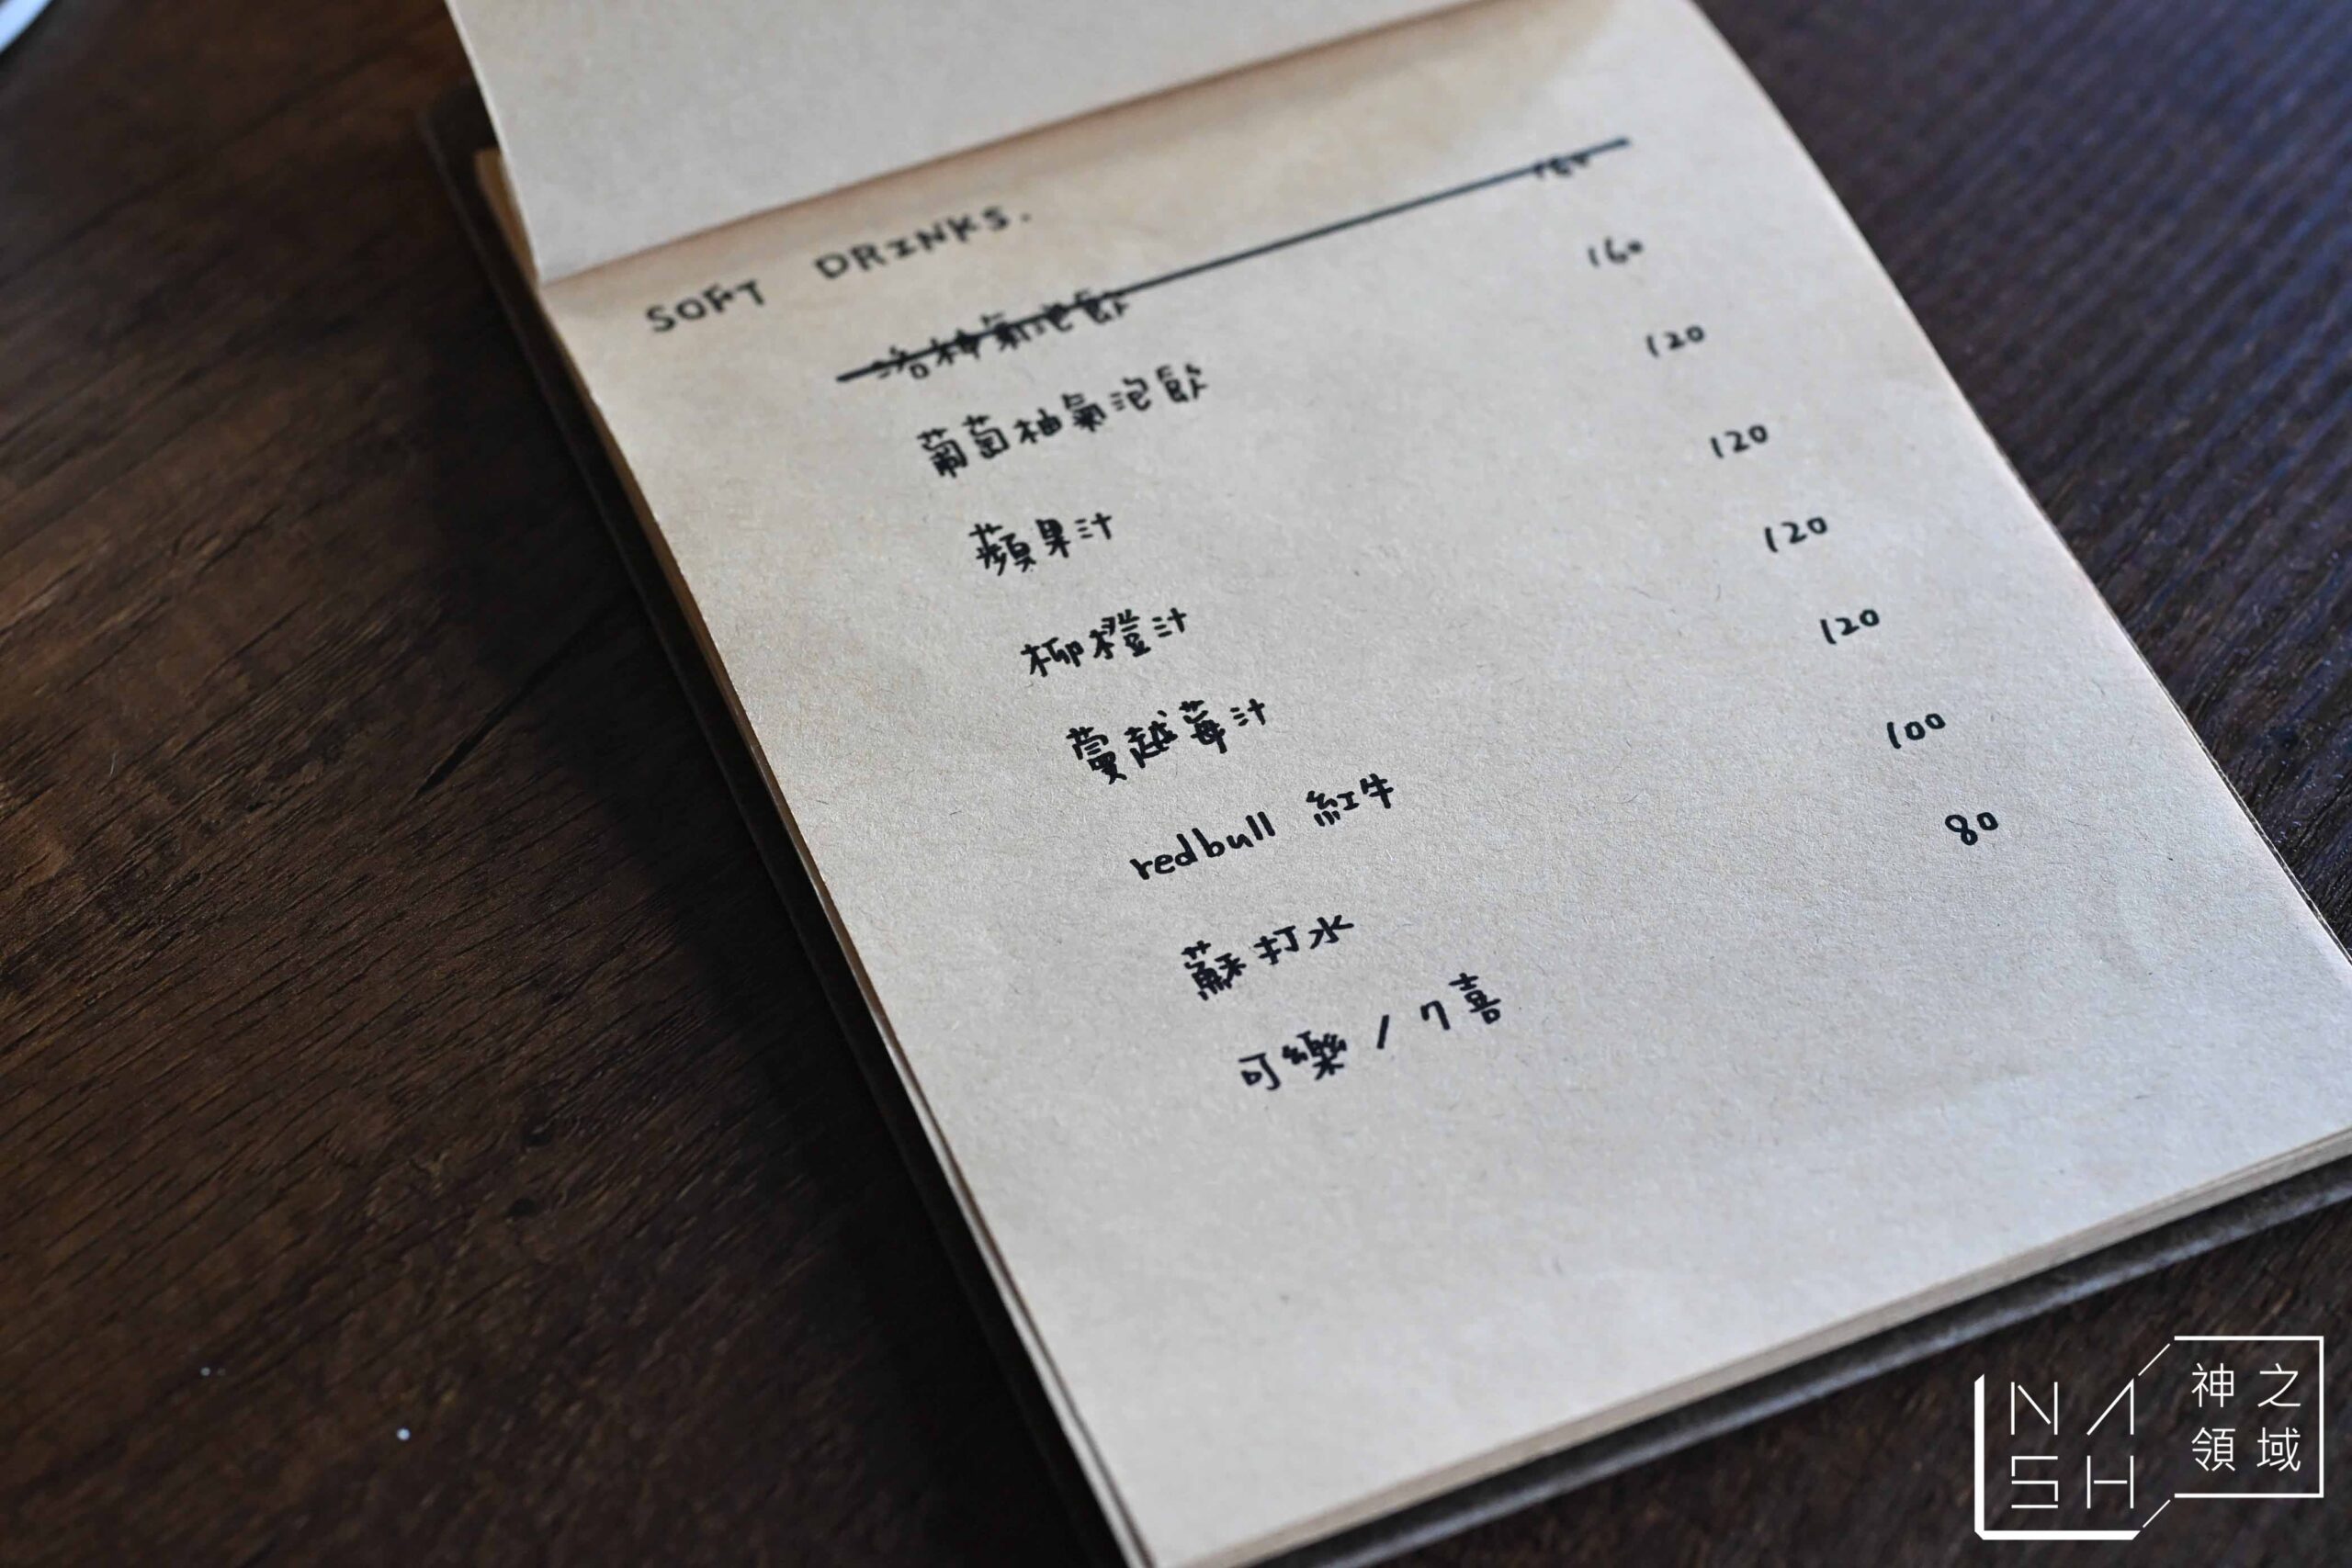 SOFT DRINKS.
氣泡飲
葡萄柚氣泡飲 160
蘋果汁 120
柳橙汁 120
蔓越莓汁 120
redbull 紅牛 120
蘇打水 100
可樂 / 7喜 80
NASH
神之領域